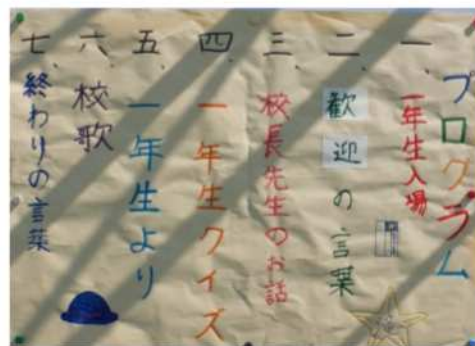 プログラム
一、一年生入場
二、歓迎の言葉
三、校長先生のお話
四、一年生クイズ
五、一年生より
六、校歌
七、終わりの言葉